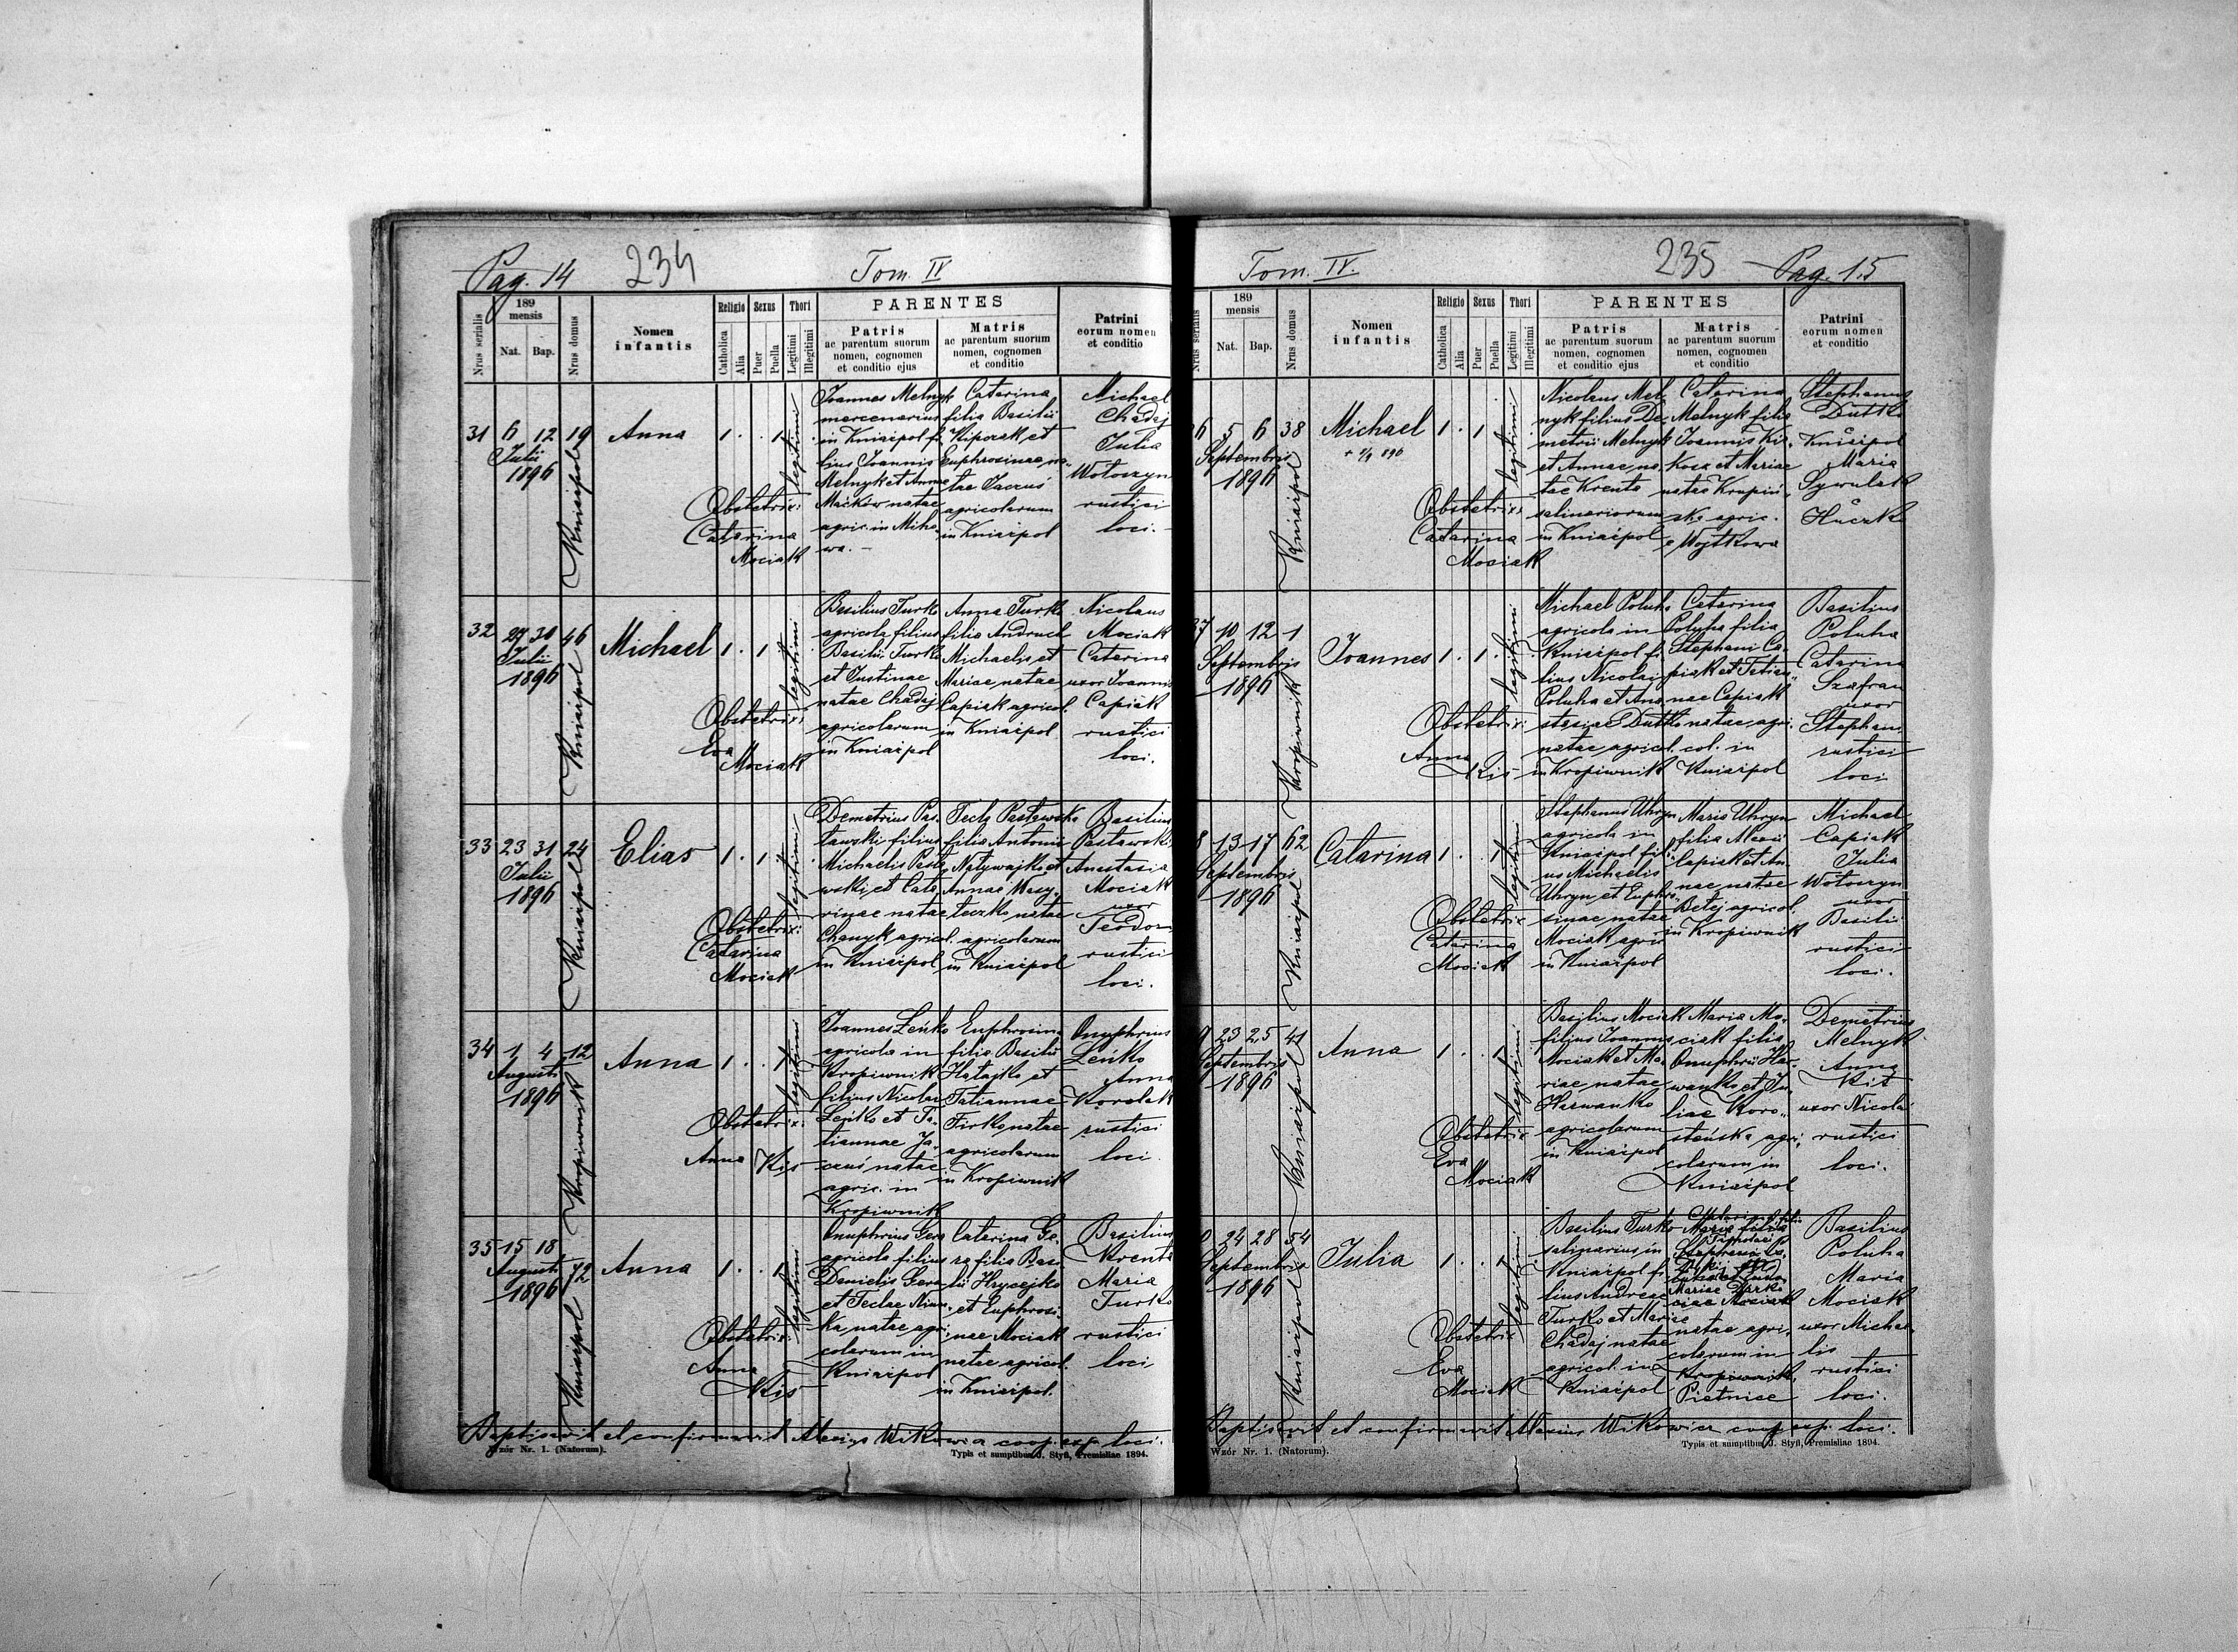 Pag. 14 234 Tom. IV
Nrus serialis
189
mensis
Nat. Bap.
Nrus domus
Nomen
infantis
Religio Sexus Thori
Catholica Alia Puer Puella Legitimi Illegitimi
PARENTES
Patris
ac parentum suorum
nomen, cognomen
et conditio ejus
Matris
ac parentum suorum
nomen, cognomen
et conditio
Patrini
eorum nomen
et conditio
31 6 12 19
Julii
1896
Kniaźpol
Anna
1 . . 1
legitimi
Obstetrix:
Catarina
Mociak
Joannes Melnyk
mercenarius
in Kniaźpol fi-
lius Joannis
Melnyk et Annae
Maćków natae
agric. in Micho
wa. —
Catarina
filia Basilii
Kiporak et
Euphrosinae na-
tae Jaceus
agricolarum
in Kniaźpol
Michael
Chadaj
Julia
Wołoszyn
rustici
loci. —
32 27 30 46
Julii
1896
Kniaźpol
Michael
1 . 1
legitimi
Obstetrix:
Eva
Mociak
Basilius Turko
agricola filius
Basilii Turko
et Justinae
natae Chadaj
agricolarum
in Kniaźpol
Anna Turko
filia Andruch
Michaelis et
Mariae natae
Capiak agricol.
in Kniaźpol
Nicolaus
Mociak
Catarina
uxor Joannis
Capiak
rustici
loci.
33 23 31 24
Julii
1896
Kniaźpol
Elias
1 . 1
legitimi
Obstetrix:
Catarina
Mociak
Demetrius Pas-
tawski filius
Michaelis Pasta
wski et Cata
rinae natae
Chanyk agricol.
in Kniaźpol
Tecla Pastawska
filia Antonii
Natywajko et
Annae Wasy-
łeczko natae
agricolarum
in Kniaźpol
Basilius
Pastawski
Anastasia
Mociak
uxor
Teodor
rustici
loci.
34 1 4 12
Augusti
1896
Kropiwnik
Anna
1 . . 1
legitimi
Obstetrix:
Anna Kis
Joannes Leńko
agricola in
Kropiwnik
filius Nicolai
Leńko et Ta-
tiannae Ja-
ceus natae
agric. in
Kropiwnik
Euphrosina
filia Basilii
Hatajko et
Tatiannae
Firko natae
agricolarum
in Kropiwnik
Onuphrius
Leńko
Anna
Koralak
rustici
loci
35 15 18
Augusti 72
1896
Kniaźpol
Anna
1 . . 1
legitimi
Obstetrix:
Anna
Kis
Onuphrius Gera
agricola filius
Danielis Gera
et Teclae
natae agri-
colarum in
Kniaźpol
Catarina Ge-
ra filia Basi-
lii Hrycejko
et Euphrosi-
nae Mociak
natae agricol.
in Kniaźpol.
Basilius
Krenta
Maria
Turko
rustici
loci
Baptisavit et confirmavit Alexius Wikowicz coop. exp. loci.
Wzór Nr. 1. (Natorum).
Typis et sumptibus J. Styfi, Premisliae 1894.
Tom. IV. 235 Pag. 15
Nrus serialis
189
mensis
Nat. Bap.
Nrus domus
Nomen
infantis
Religio Sexus Thori
Catholica Alia Puer Puella Legitimi Illegitimi
PARENTES
Patris
ac parentum suorum
nomen, cognomen
et conditio ejus
Matris
ac parentum suorum
nomen, cognomen
et conditio
Patrini
eorum nomen
et conditio
6 5 6 38
Septembris
1896
Kniaźpol
Michael
1 . 1
legitimi
Obstetrix:
Catarina
Mociak
Nicolaus Mel-
nyk filius De-
metrii Melnyk
et Annae na-
tae Krenta
salinariorum
in Kniaźpol
Catarina
Melnyk filia
Joannis Kis-
Kosz et Mariae
natae Krupiń-
ska agric.
e Wojtkowa
Stephanus
Dutko
Kniaźpol
Maria
Sywulak
Huczko
7 10 12 1
Septembris
1896
Kropiwnik
Joannes
1 . 1
legitimi
Obstetrix:
Anna
Kis
Michael Poluha
agricola in
Kniaźpol fi-
lius Nicolai
Poluha et Ana-
stasiae Dutko
natae agricol.
in Kropiwnik
Catarina
Poluha filia
Stephani Ca-
piak et Tatian-
nae Capiak
natae agri-
col. in
Kniaźpol
Basilius
Poluha
Catarina
Szafran
uxor
Stephani
rustici
loci
8 13 17 62
Septembris
1896
Kniaźpol
Catarina
1 . . 1
legitimi
Obstetrix
Catarina
Mociak
Stephanus Uhryn
agricola in
Kniaźpol fili-
us Michaelis
Uhryn et Euphro-
sinae natae
Mociak agric
in Kniaźpol
Maria Uhryn
filia Alexii
Capiak et An-
nae natae
Betej agricol.
in Kropiwnik
Michael
Capiak
Julia
Wołoszyn
uxor
Basilii
rustici
loci.
9 23 25 41
Septembris
1896
Kniaźpol
Anna
1 . . 1
legitimi
Obstetrix
Eva
Mociak
Basilius Mociak
filius Joannis
Mociak et Ma-
riae natae
Harwanko
agricolarum
in Kniaźpol
Maria Mo-
ciak filia
Onuphrii Har-
wanko et Ju-
liae Koro-
steńska agri-
colarum in
Kniaźpol
Demetrius
Melnyk
Anna
Kit
uxor Nicolai
rustici
loci.
0 24 28 54
Septembris
1896
Kniaźpol
Julia
1 . . 1
legitimi
Obstetrix
Eva
Mociak
Basilius Turko
salinarius in
Kniaźpol fi-
lius Andreae
Turko et Mariae
Chadaj natae
agricol. in
Kniaźpol
Maria filia
Mariae
natae agri-
colarum in
Kropiwnik
Piętnice
Basilius
Poluha
Maria
Mociak
uxor Michae-
lis
rustici
loci.
Baptisavit et confirmavit Alexius Wikowicz coop. exp. loci.
Wzór Nr. 1. (Natorum).
Typis et sumptibus J. Styfi, Premisliae 1894.